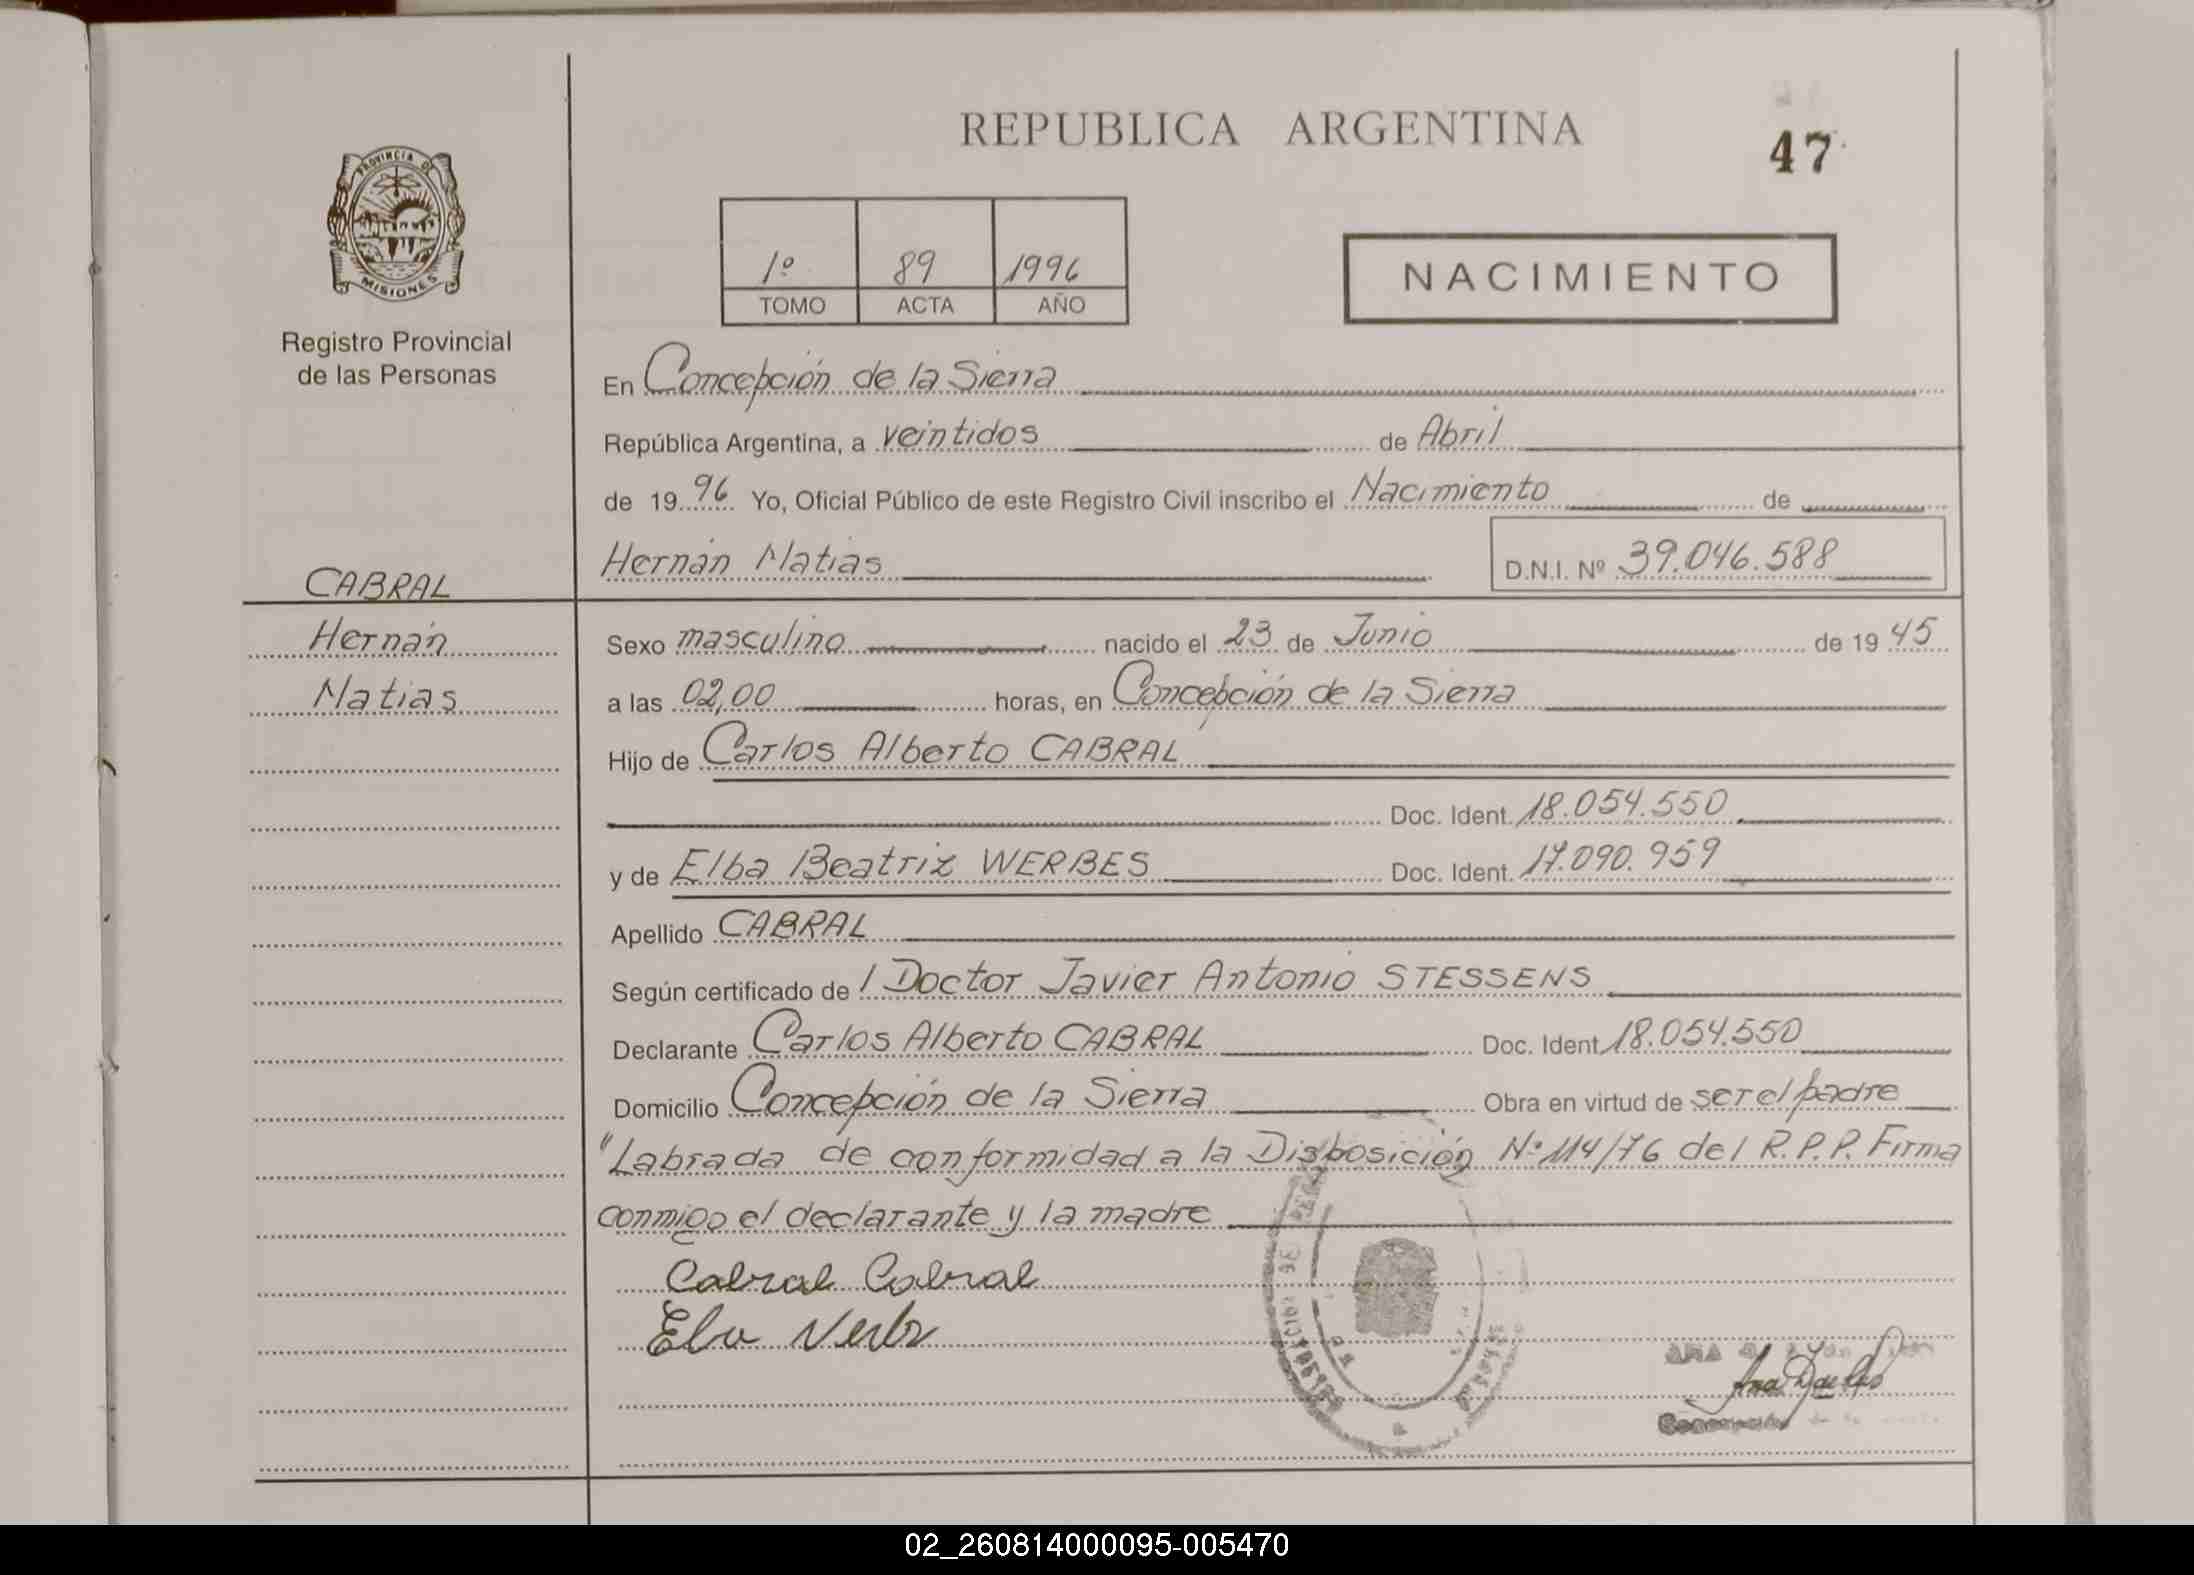 REPUBLICA ARGENTINA
47
PROVINCIA DE
MISIONES
Registro Provincial
de las Personas
1º 89 1996
TOMO ACTA AÑO
NACIMIENTO
En Concepción de la Sierra
República Argentina, a veintidos de Abril
de 19 96 Yo, Oficial Público de este Registro Civil inscribo el Nacimiento de
Hernán Matias D.N.I. Nº 39.046.588
CABRAL
Hernán
Matias
Sexo masculino nacido el 23 de Junio de 19 45
a las 02,00 horas, en Concepción de la Sierra
Hijo de Carlos Alberto CABRAL
Doc. Ident. 18.054.550
y de Elba Beatriz WERBES Doc. Ident. 17.090.959
Apellido CABRAL
Según certificado de l Doctor Javier Antonio STESSENS
Declarante Carlos Alberto CABRAL Doc. Ident. 18.054.550
Domicilio Concepción de la Sierra Obra en virtud de ser el padre
"Labrada de conformidad a la Disposición Nº 114/76 del R.P.P. Firma
conmigo el declarante y la madre
Cabral Cabral
02_260814000095-005470